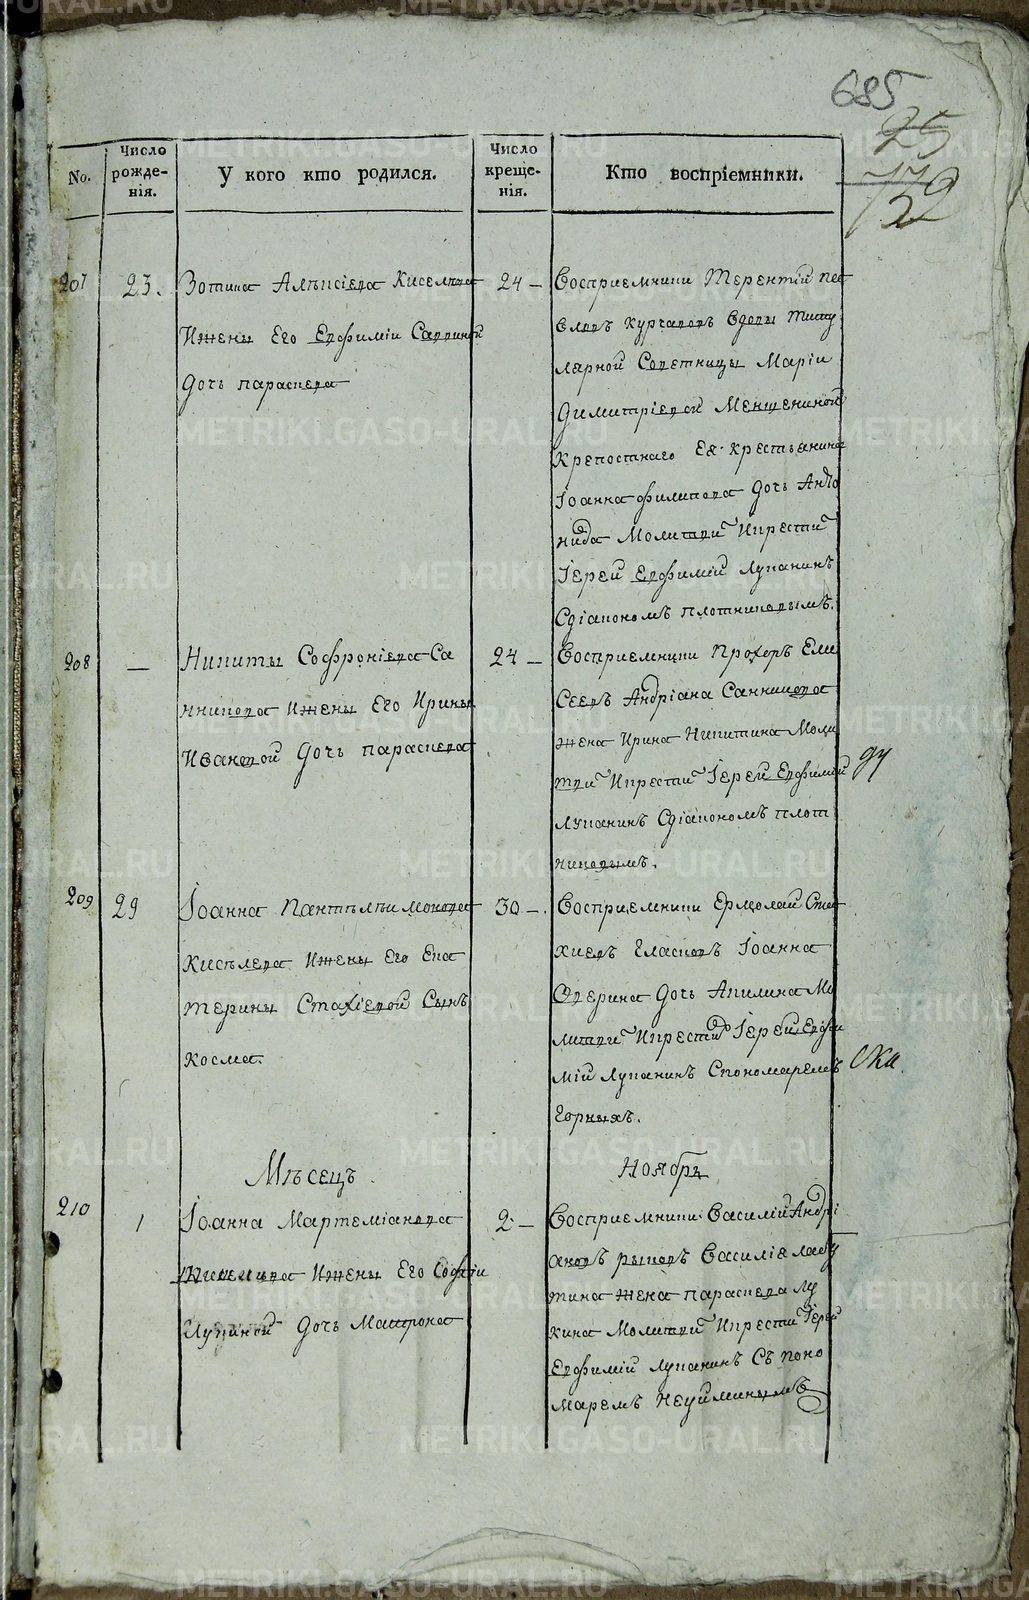 685
25
179
52
No.
Число рожденія.
У кого кто родился.
Число крещенія.
Кто воспріемники.
207
23.
Зотика Алѣксіева Киселева
и жены его Евфиміи Саввиной
дочь параскева
24 –
Восприемники Терентій Пав
вловъ Курчавовъ вдовы титу
лярной Советницы Маріи
Димитріевой Меншениной
крепостнаго Ея крестьянина
Іоанна филипова дочь Анто
нида Молитви и крести
Іерей Евфимій Лупанинъ
Сдіакономъ плотниковымъ.
208
—
Никиты Софроніева Са
нникова и жены его Ирины
Ивановой дочь параскева
24 –
Восприемники Прохоръ Ели
сеевъ Андріана Санникова
жена Ирина Никитина Моли
тви и крести Іерей Евфимий
Лупанинъ Сдіакономъ плот
никовымъ.
ду
209
29
Іоанна Пантѣлѣимонова
Кисѣлева и жены его Ека
терины Стахіевой Сынъ
Косма.
30 –
Восприемники Ермолай Ста
хиевъ Іоанна
дочь Акилина Мо
литви и крести Іерей Евфи
мій Лупанинъ Спономаремъ
Горныхъ.
Мѣсецъ
Ноябрь
210
1
Іоанна Мартеміанова
и жены его Софіи
дочь Матрона
2 –
Восприемники Василий Андрі
ановъ рыковъ Василіе лабу
тина жена параскева Лу
кина Молитви и крести Іерей
Евфимій Лупанинъ Съ поно
маремъ Неуйминымъ